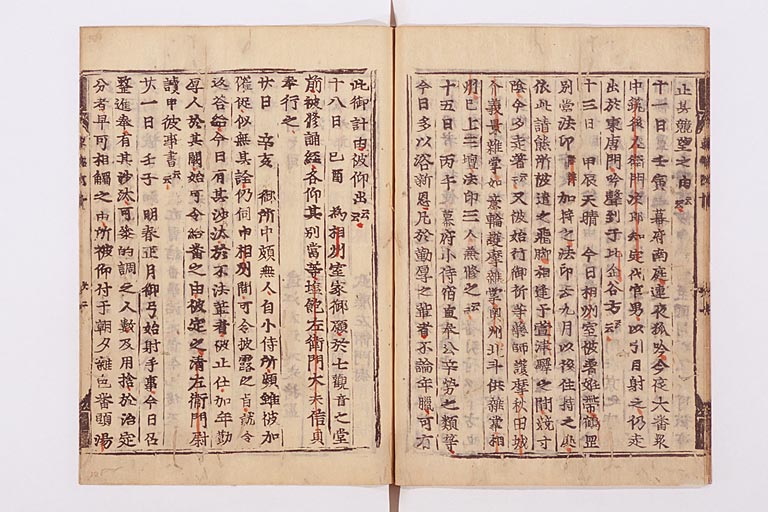 止其競望之由云々
十一日壬寅幕府南庭連夜狐吟今夜大番衆
中筑後左衛門次郎知定代官男以引目射之仍走
出於東唐門吟聲到于比企谷方云々
十三日 甲辰天晴 今日相州室被著妊帶鶴岡
別當法印 加持之法印去九月以後住持之
依此請態所被遣之飛脚相逢于當津驛之間競寸
陰今夕走著云々又被始行御祈等藥師護摩秋田城
介義景雜掌如意輪護摩雜掌南州北斗供雜掌相
州已上三壇法印三人兼修之云々
十五日 丙午 幕府小侍宿直奉公辛勞之類等
今日多以浴新恩凡於勤厚之輩者不論年臈可有
此御計由被仰出云々
十八日 己酉 爲相州室家御願於七觀音之堂
前被修誦經各仰其別當等塩飽左衛門大夫信貞
奉行之
廿日 辛亥 御所中頗無人自小侍所頻雖被加
催促似無其詮仍伺申相州間可令披露之旨就令
返答給今日有其沙汰於不法輩者被止仕加年勤
厚人於其闕始可令結番之由被定之清左衛門尉
讀申彼事書云々
廿一日 壬子 明春正月御弓始射手事今日召
整進奉有其沙汰可染的調之人數及用捨於治定
分者早可相觸之由所被仰付于朝夕雜色番頭湯